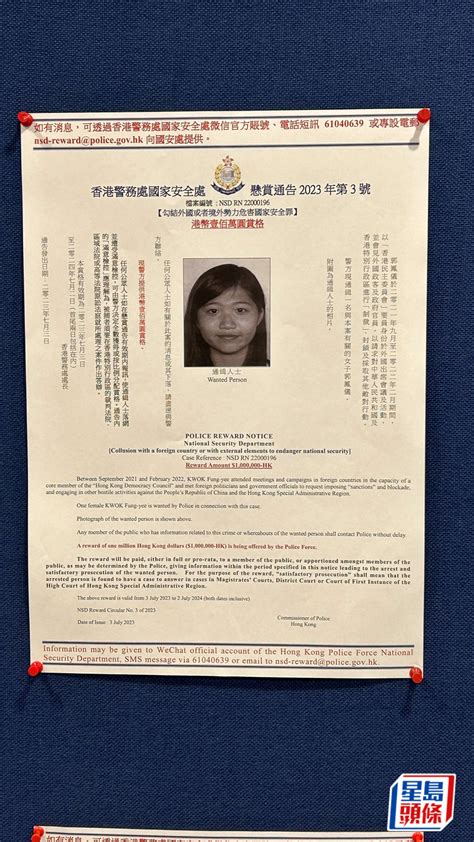 如有消息，可透過香港警務處國家安全處微信官方賬號、電話短訊 61040639 或專設電郵
nsd-reward@police.gov.hk 向國安處提供。
香港警務處國家安全處 懸賞通告 2023 年第 3 號
檔案編號：NSD RN 22000196
【勾結外國或者境外勢力危害國家安全罪】
港幣壹佰萬圓賞格
郭鳳儀於二○二一年九月至二○二二年二月期間，
以「香港民主委員會」要員身份於外國出席會議及活動，
並會見外國政客及政府官員，以請求對中華人民共和國及
香港特別行政區進行「制裁」、封鎖及採取其他敵對行動。
警方現通緝一名與本案有關的女子郭鳳儀。
附圖為通緝人士的相片。
任何公眾人士如有關於此案的消息或其下落，請盡速與警
方聯絡。
現警方提供港幣壹佰萬圓賞格。
任何公眾人士如在懸賞通告有效期內報訊，使通緝人士落網
並遭受滿意檢控，可由警方決定全數獲得或按比例分配賞格。通告內
的「滿意檢控」應理解為，被捕者須要在香港特別行政區的裁判法院、
區域法院或高等法院原訟法庭就所處理之案件作出答辯。
本賞格有效期為二○二三年七月三日
至二○二四年七月二日(首尾兩日包括在內)
香港警務處處長
通告發出日期：二○二三年七月三日
通緝人士
Wanted Person
POLICE REWARD NOTICE
National Security Department
[Collusion with a foreign country or with external elements to endanger national security]
Case Reference : NSD RN 22000196
Reward Amount $1,000,000-HK
Between September 2021 and February 2022, KWOK Fung-yee attended meetings and campaigns in foreign countries in the capacity of a
core member of the "Hong Kong Democracy Council" and met foreign politicians and government officials to request imposing "sanctions" and blockade,
and engaging in other hostile activities against the People's Republic of China and the Hong Kong Special Administrative Region.
One female KWOK Fung-yee is wanted by Police in connection with this case.
Photograph of the wanted person is shown above.
Any member of the public who has information related to this crime or whereabouts of the wanted person shall contact Police without delay.
A reward of one million Hong Kong dollars ($1,000,000-HK) is being offered by the Police Force.
The reward will be paid, either in full or pro-rata, to a member of the public, or apportioned amongst members of the
public, as may be determined by the Police, giving information within the period specified in this notice leading to the arrest and
satisfactory prosecution of the wanted person. For the purpose of the reward, "satisfactory prosecution" shall mean that the
arrested person is found to have a case to answer in cases in Magistrates' Courts, District Court or Court of First Instance of the
High Court of Hong Kong Special Administrative Region.
The above reward is valid from 3 July 2023 to 2 July 2024 (both dates inclusive)
NSD Reward Circular No. 3 of 2023
Date of Issue : 3 July 2023
Commissioner of Police
Hong Kong
Information may be given to WeChat official account of the Hong Kong Police Force National
Security Department, SMS message via 61040639 or email to nsd-reward@police.gov.hk.
星島
頭條